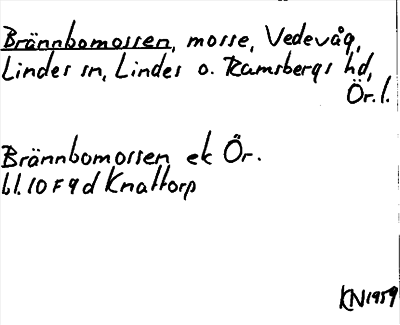 Brännbomossen, mosse, Vedevåg,
Lindes sn, Lindes o. Ramsbergs hd,
Ör. l.
Brännbomossen ek Ör.
bl. 10 F 9 d Knattorp
KN 1959